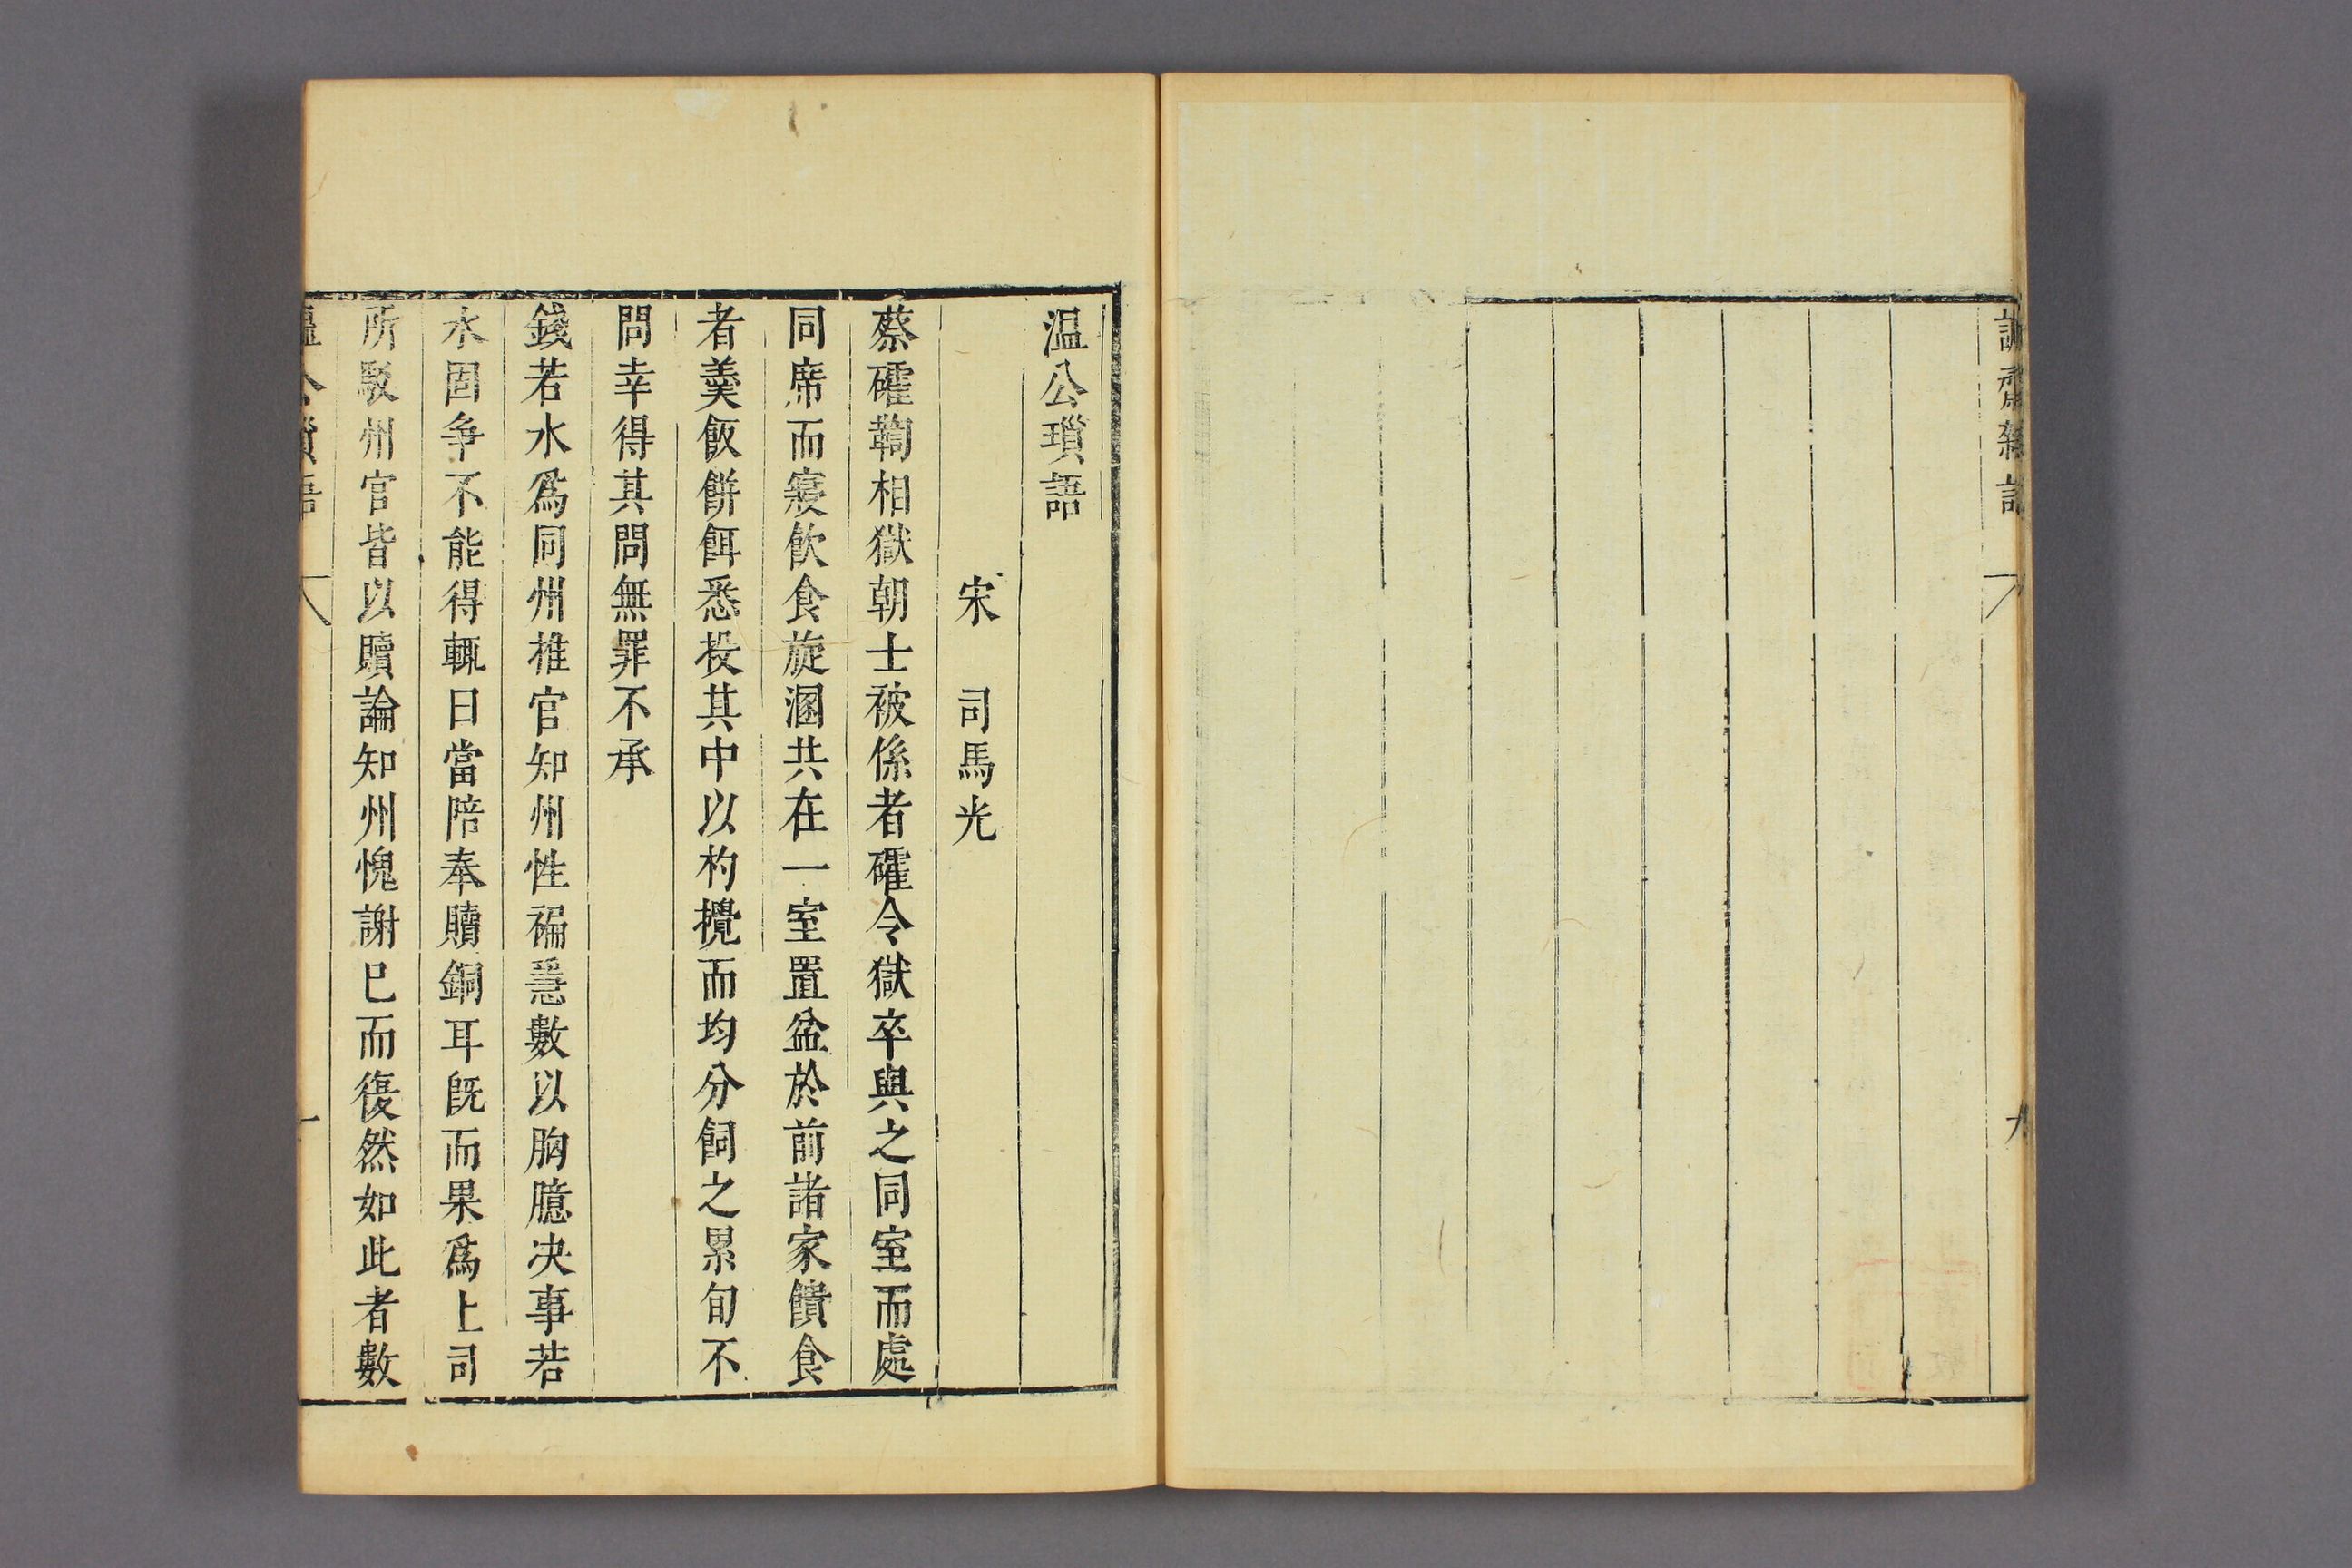 溫公瑣語
宋 司馬光
蔡確鞫相獄朝士被係者確令獄卒與之同室而處
同席而寢飲食旋溷共在一室置盆於前諸家饋食
者羹飯餅餌悉投其中以杓攪而均分飼之累旬不
問幸得其問無罪不承
錢若水爲同州推官知州性褊急數以胸臆决事若
水固争不能得輒曰當陪奉贖銅耳旣而果爲上司
所駁州官皆以贖論知州愧謝已而復然如此者數